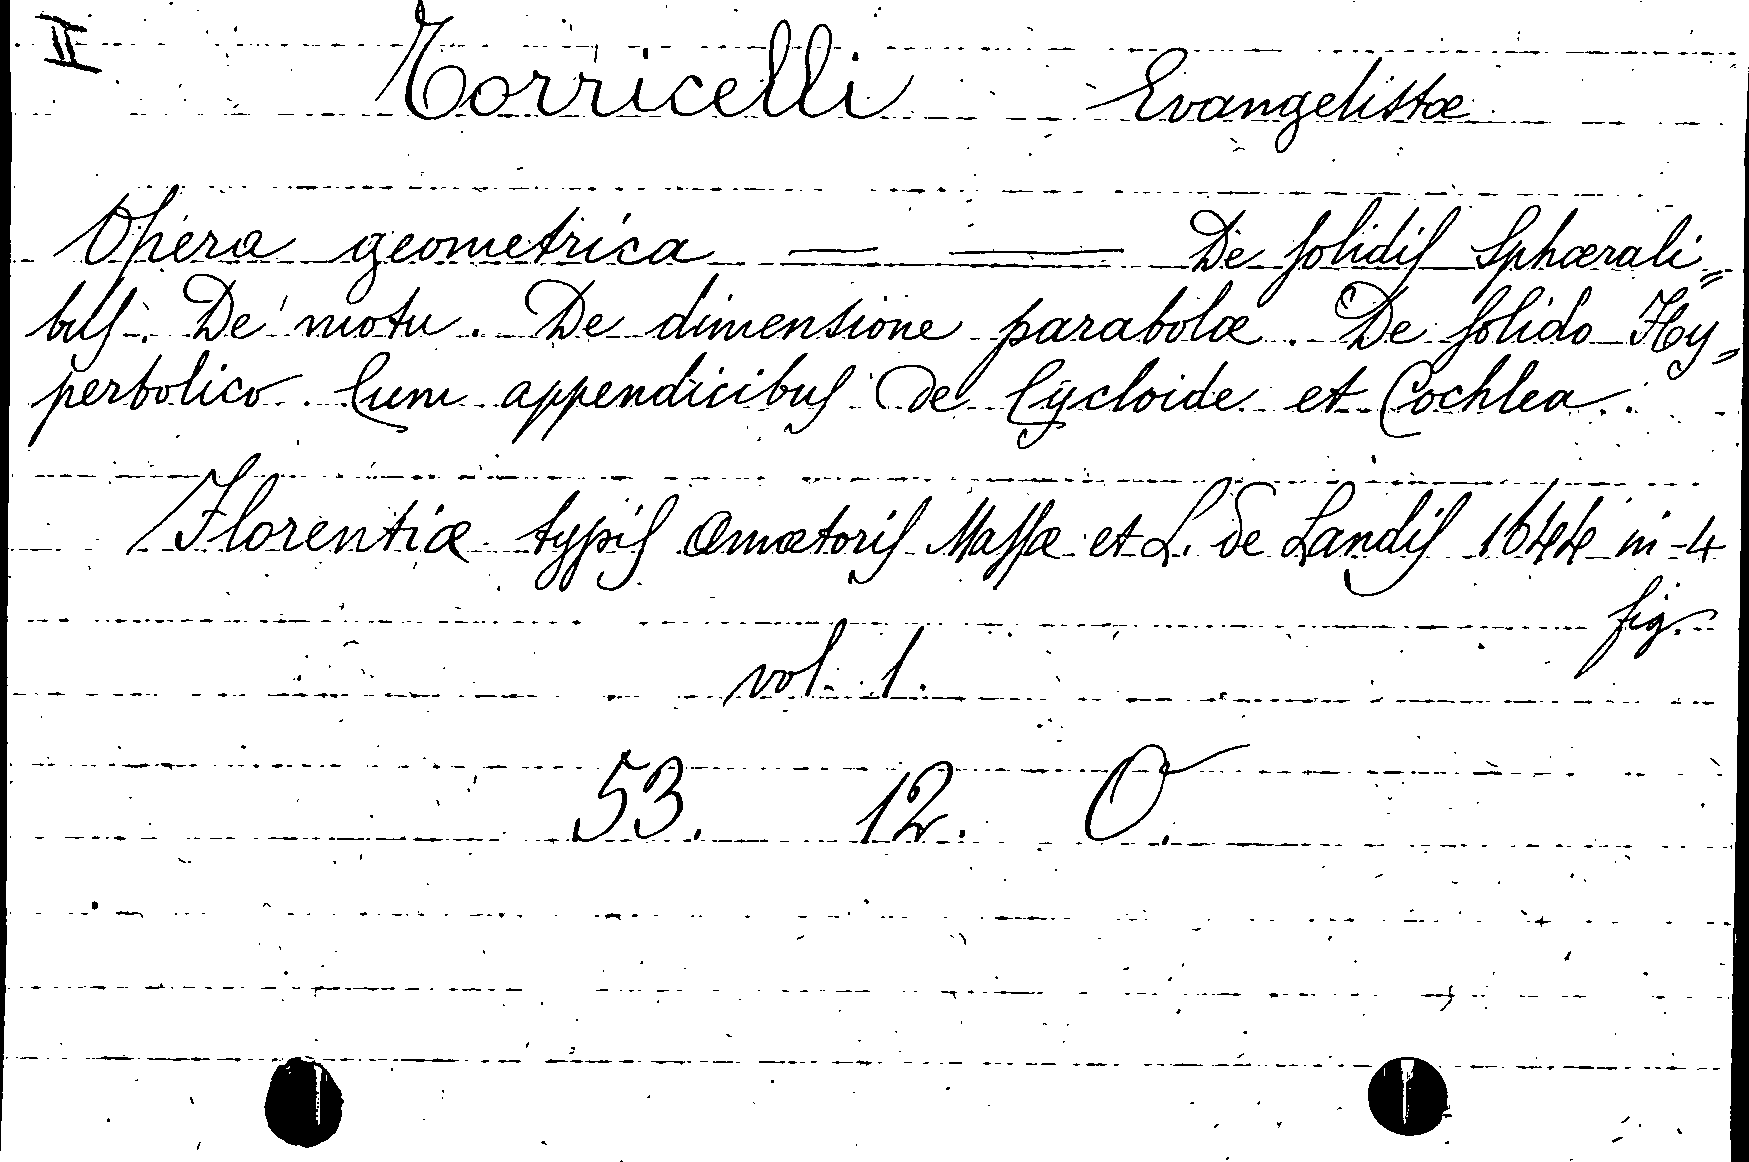 II Torricelli Evangelistæ
Opera geometrica — — De solidis Sphærali=
bus. De motu. De dimensione parabolæ. De solido Hy=
perbolico. Cum appendicibus de Cycloide et Cochlea.
Florentiæ typis Amatoris Massæ et L. de Landis 1644 in-4
fig.
vol. 1.
53. 12. O.